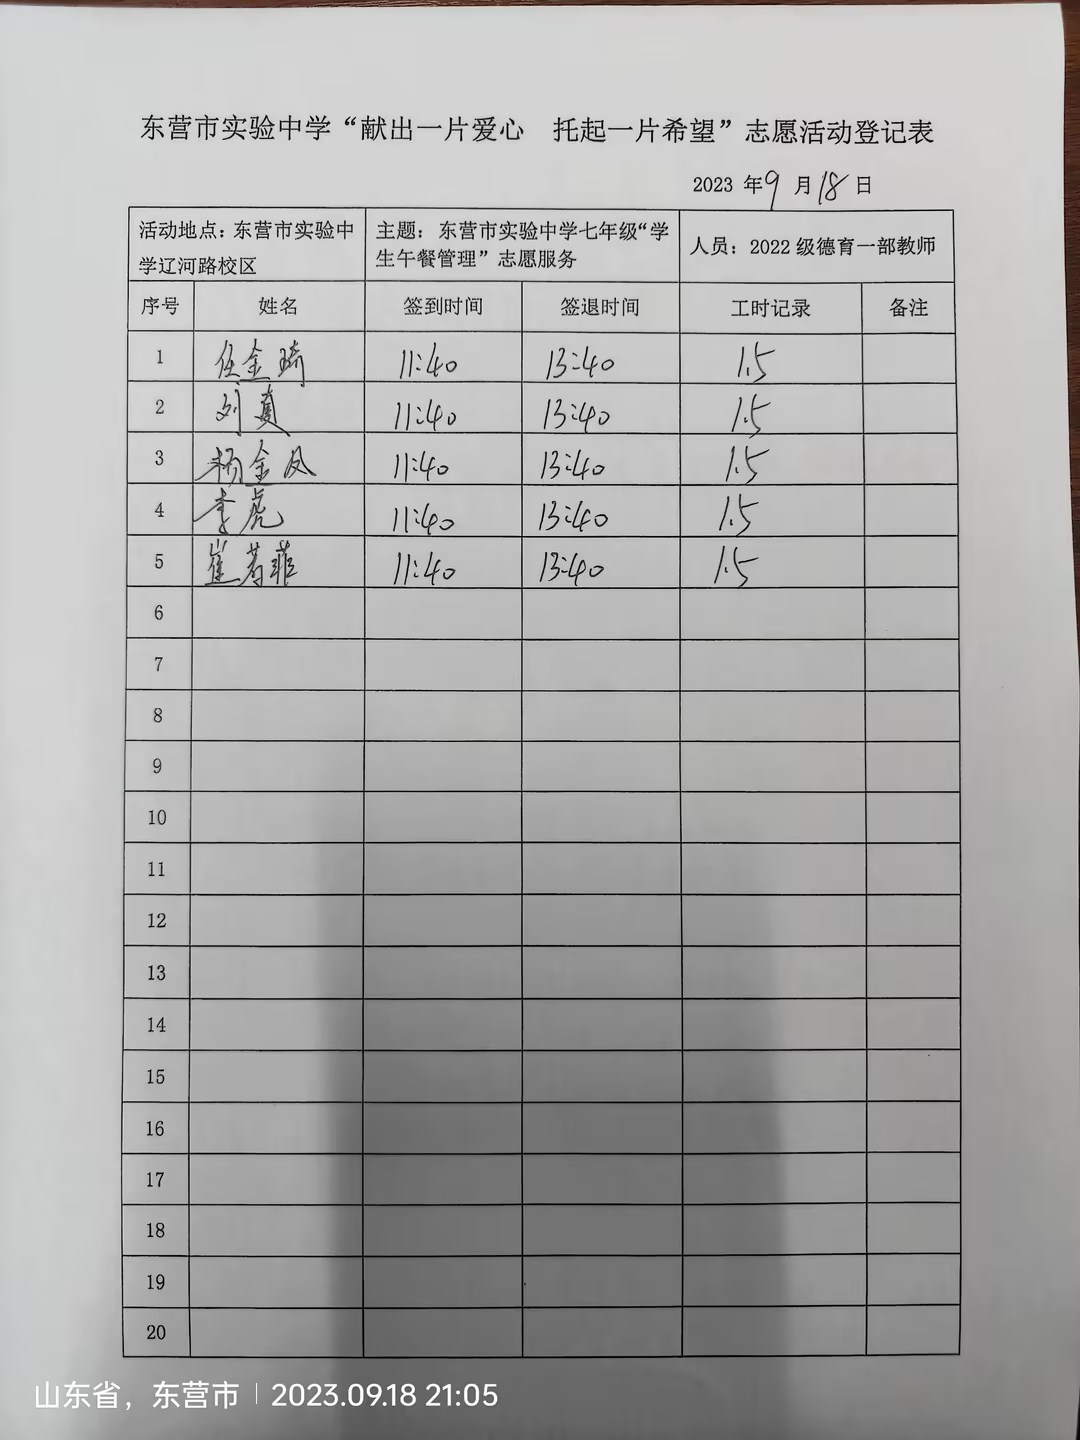 东营市实验中学“献出一片爱心　托起一片希望”志愿活动登记表
2023 年 9 月 18 日
活动地点：东营市实验中学辽河路校区 主题：东营市实验中学七年级“学生午餐管理”志愿服务 人员：2022 级德育一部教师
序号 姓名 签到时间 签退时间 工时记录 备注
1 任金琦 11:40 13:40 1.5
2 刘 11:40 13:40 1.5
3 杨金凤 11:40 13:40 1.5
4 李虎 11:40 13:40 1.5
5 崔若菲 11:40 13:40 1.5
6
7
8
9
10
11
12
13
14
15
16
17
18
19
20
山东省，东营市 | 2023.09.18 21:05